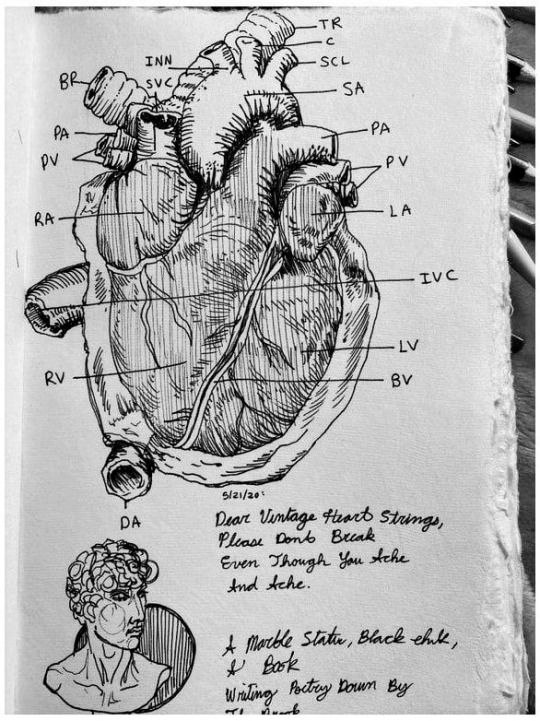 TR
C
INN
SCL
BR
SVC
SA
PA
PA
PV
PV
RA
LA
IVC
RV
LV
BV
DA
5/21/20:
Dear Vintage Heart Strings,
Please Dont Break
Even Though You Ache
And Ache.
A Marble Statu, Black-
A Book
Writing Poetry Down By